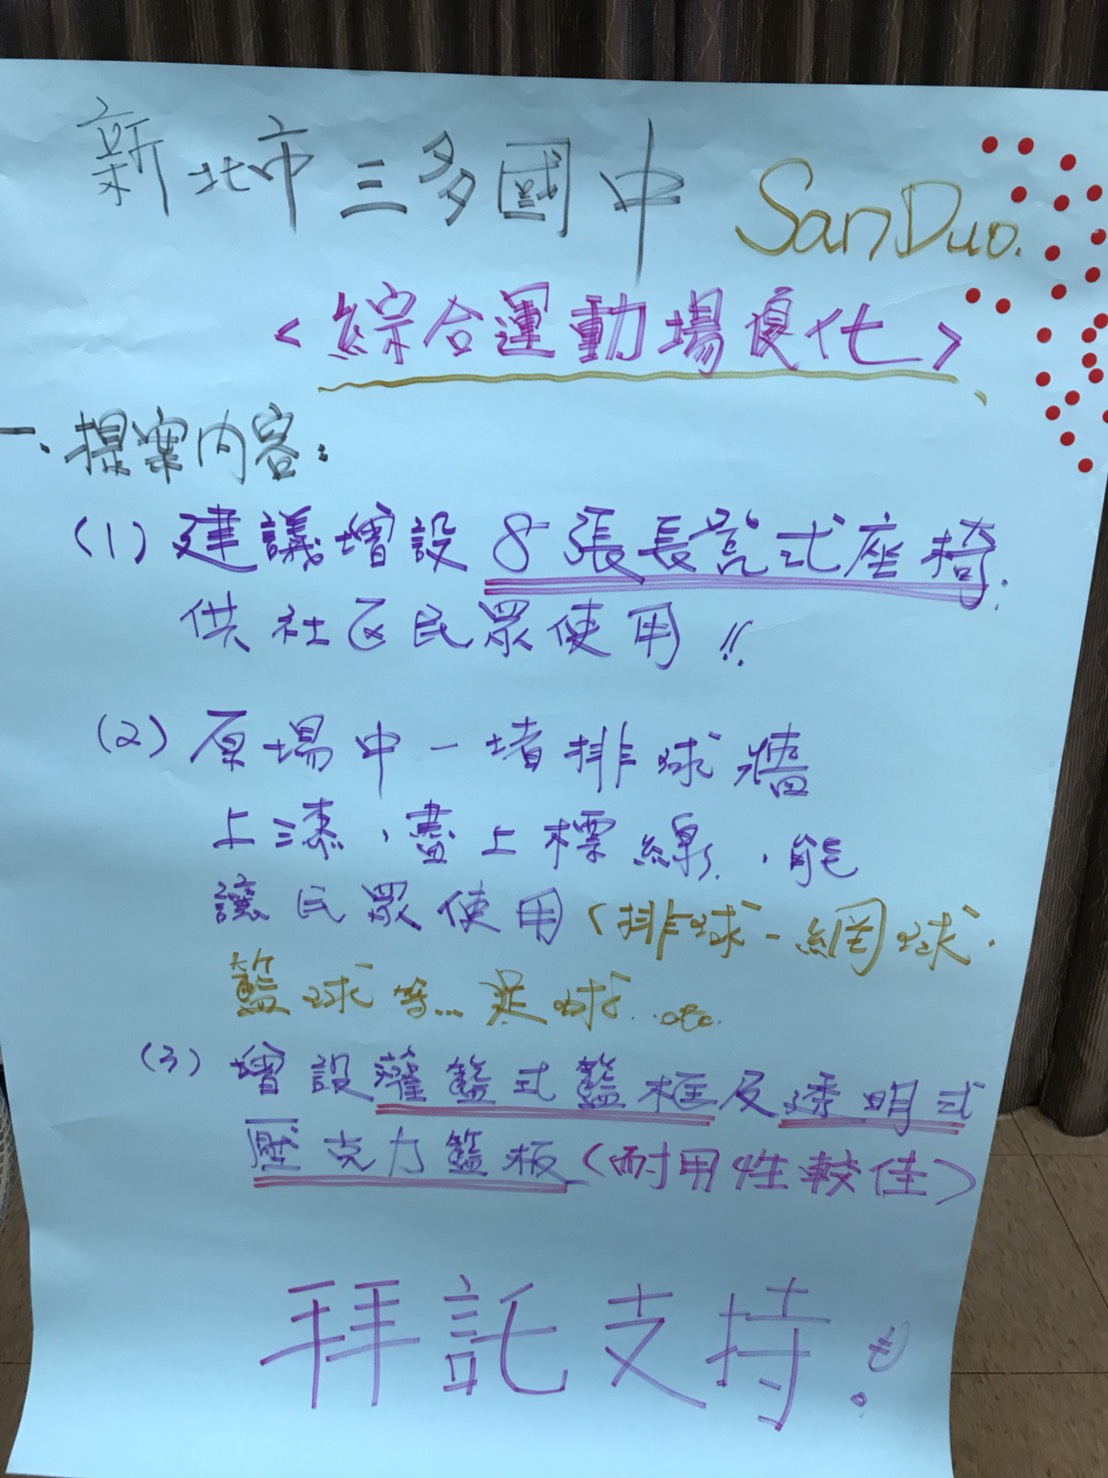 新北市三多國中 SanDuo.
<綜合運動場優化>
一、提案內容:
(1) 建議增設8張長凳式座椅.
供社区民眾使用!!
(2) 原場中一堵排球牆
上漆,畫上標線,能
讓民眾使用(排球-網球.
籃球等...足球...etc.
(3) 增設灌籃式籃框及透明式
壓克力籃板(耐用性較佳)
拜託支持!